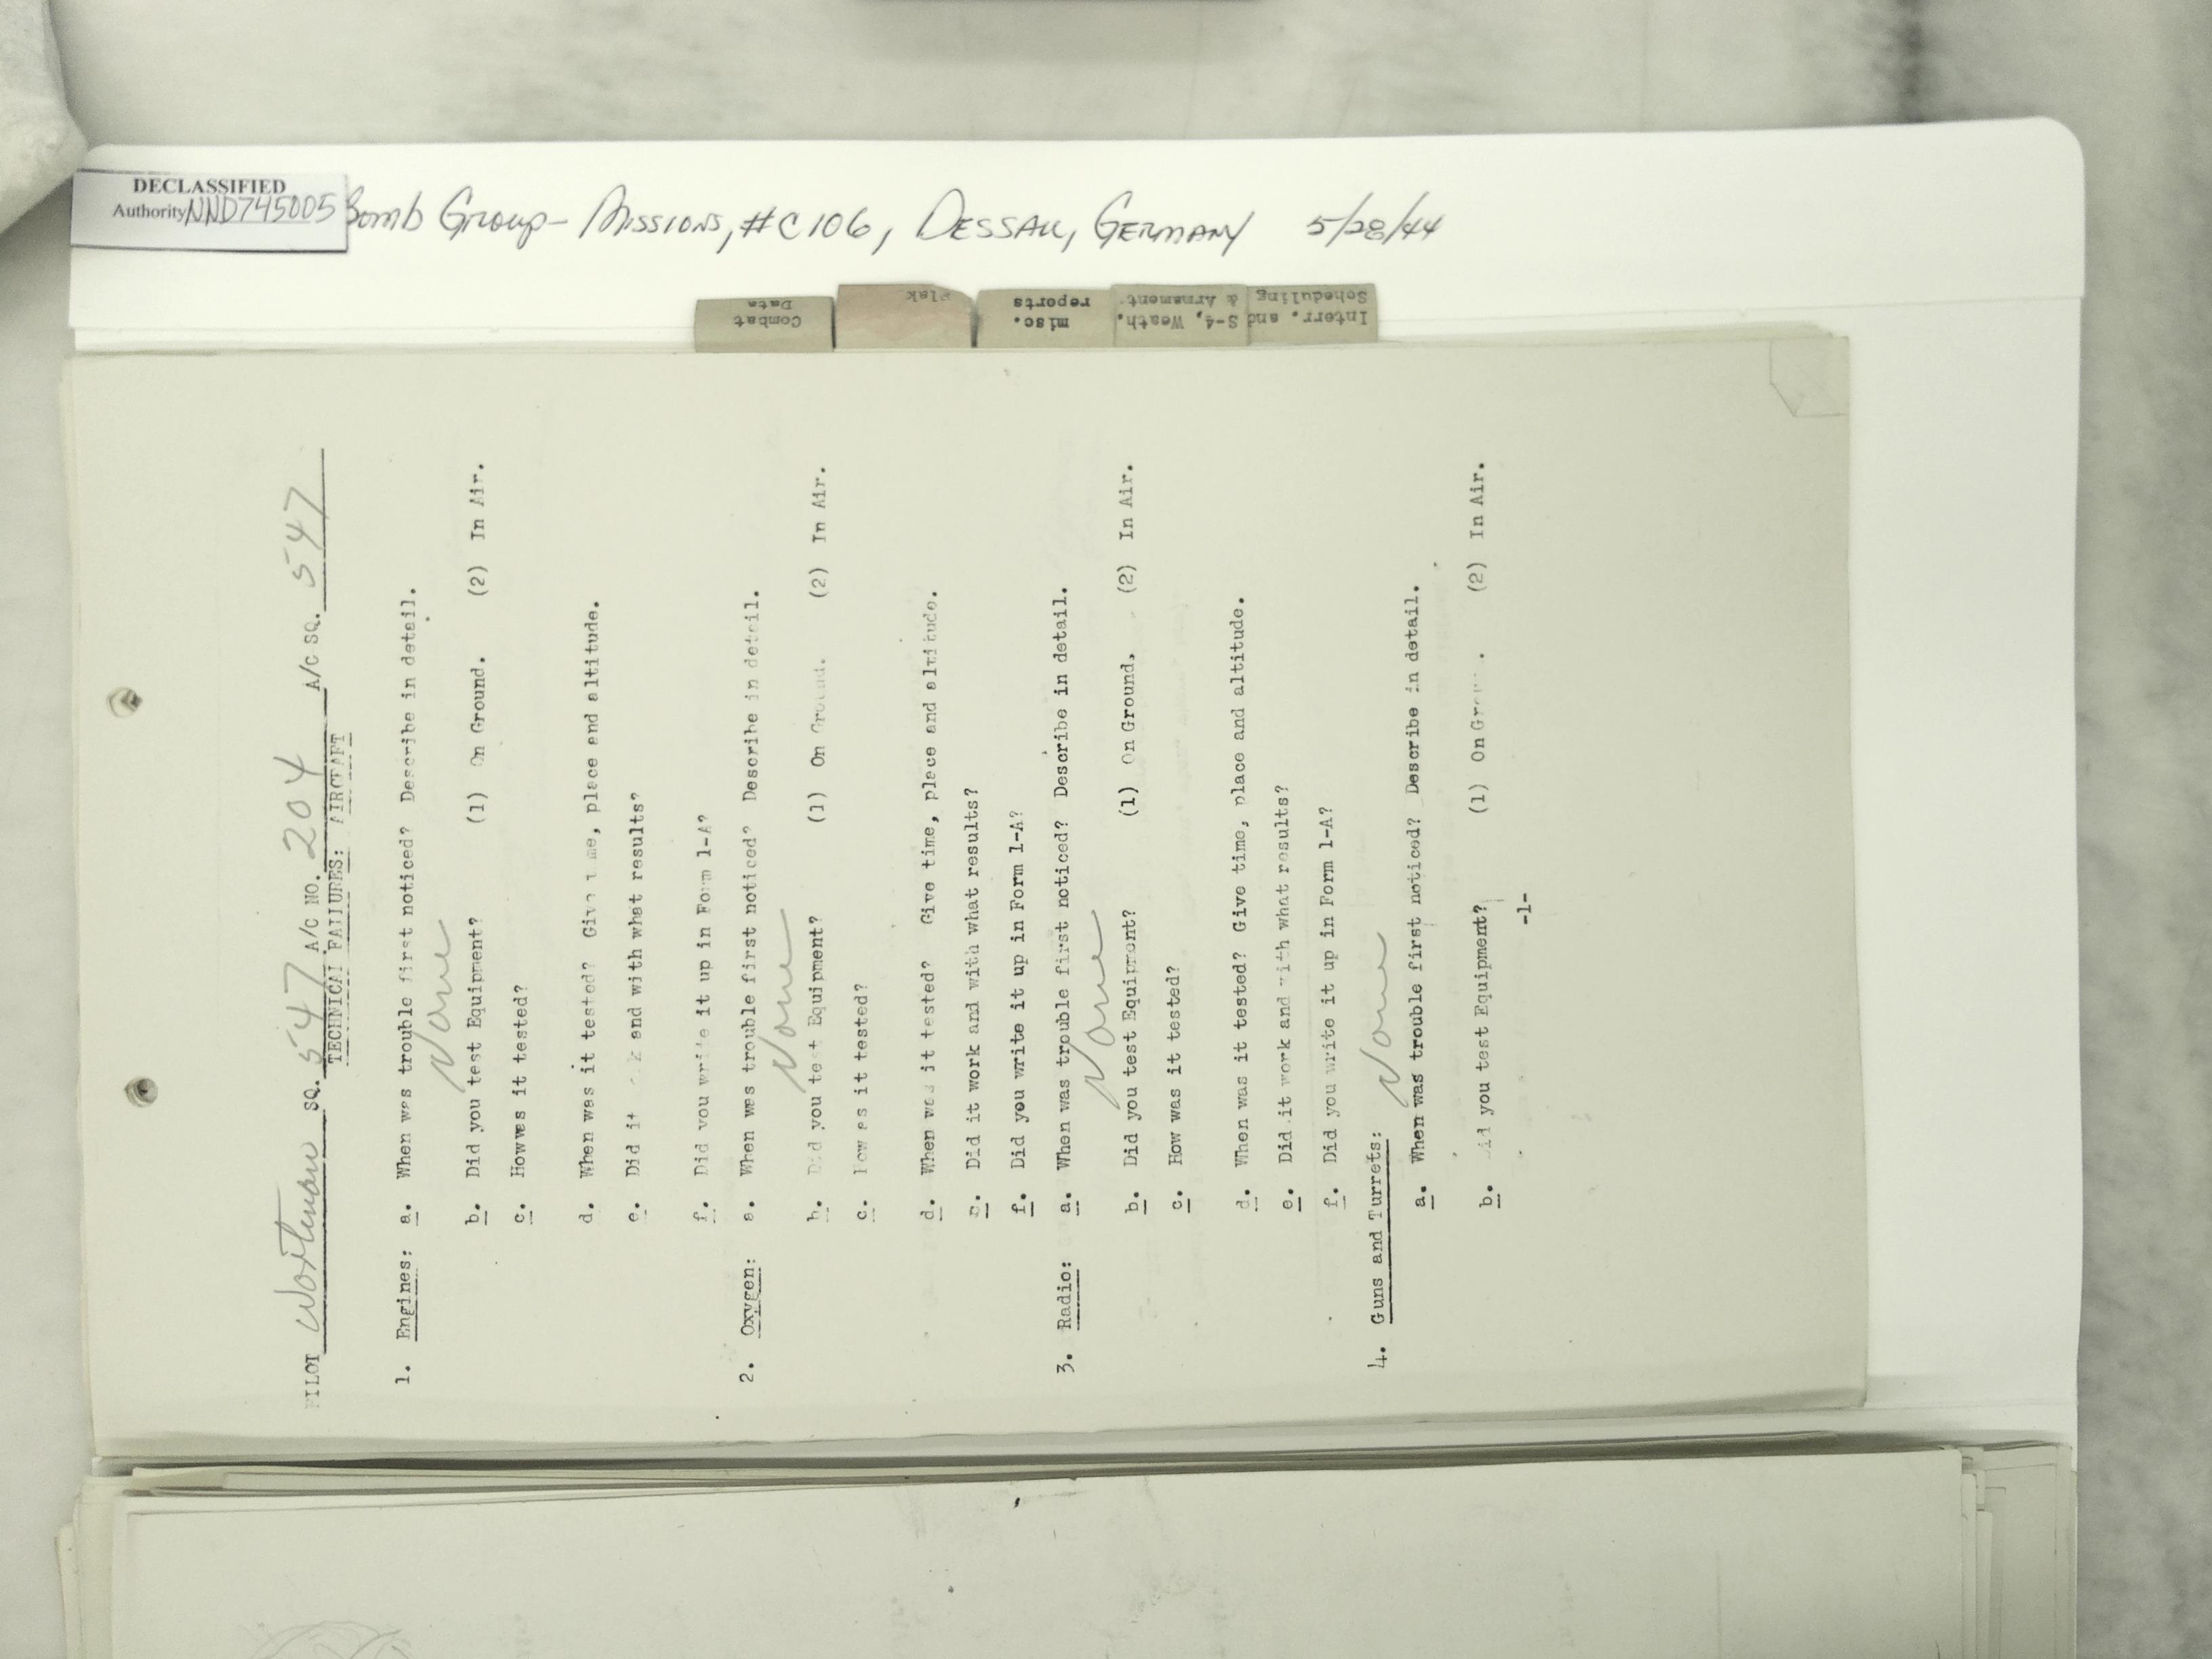 DECLASSIFIED
Authority NND745005
Bomb Group - Missions, #C106, Dessau, Germany 5/28/44
Combat
Data
Flak
misc.
reports
S-4, Weath.
& Armament
Interr. and
Scheduling
PILOT Wortman SQ. 547 A/C NO. 204 A/C SQ. 547
TECHNICAL FAILURES: AIRCRAFT
1. Engines: a. When was trouble first noticed? Describe in detail.
None
b. Did you test Equipment? (1) On Ground. (2) In Air.
c. How was it tested?
d. When was it tested? Give time, place and altitude.
e. Did it and with what results?
f. Did you write it up in Form 1-A?
2. Oxygen: a. When was trouble first noticed? Describe in detail.
None
b. Did you test Equipment? (1) On Ground. (2) In Air.
c. How as it tested?
d. When was it tested? Give time, place and altitude.
e. Did it work and with what results?
f. Did you write it up in Form 1-A?
3. Radio: a. When was trouble first noticed? Describe in detail.
None
b. Did you test Equipment? (1) On Ground. (2) In Air.
c. How was it tested?
d. When was it tested? Give time, place and altitude.
e. Did it work and with what results?
f. Did you write it up in Form 1-A?
4. Guns and Turrets: None
a. When was trouble first noticed? Describe in detail.
b. Did you test Equipment? (1) On Ground. (2) In Air.
-1-